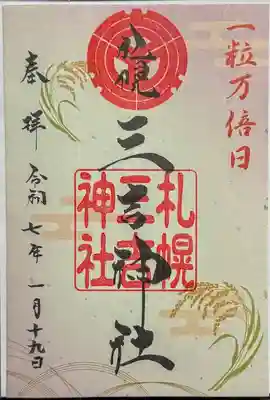 一粒万倍日
札幌
三吉神社
札幌
三吉
神社
奉拝
令和七年一月十九日